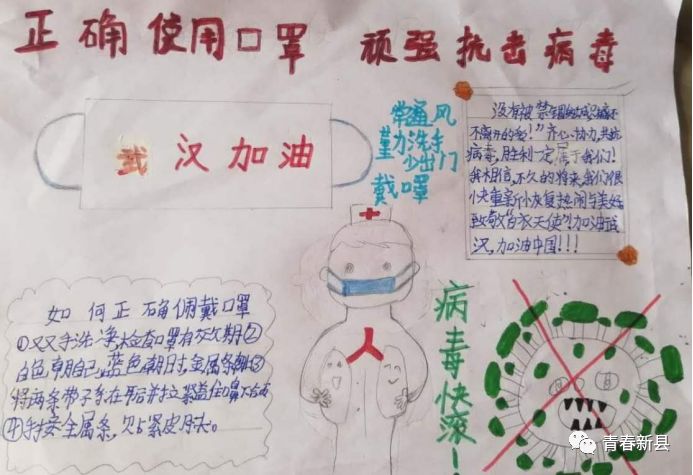 正确使用口罩 顽强抗击病毒
武汉加油
常通风
勤洗手
少出门
戴口罩
没有被禁锢的城只有离
不离开的爱！”齐心协力，共抗
病毒，胜利一定属于我们！
我相信，不久的将来，我们很
快重新恢复热闹与美好
致敬“白衣天使”！加油武
汉，加油中国！！！
如何正确佩戴口罩
①双手洗净检查口罩有效期②
白色朝自己，蓝色朝外，金属条朝③
将两条带子在耳后并拉紧盖住鼻下
④按金属条，贴紧皮肤。
病毒快滚！
青春新县